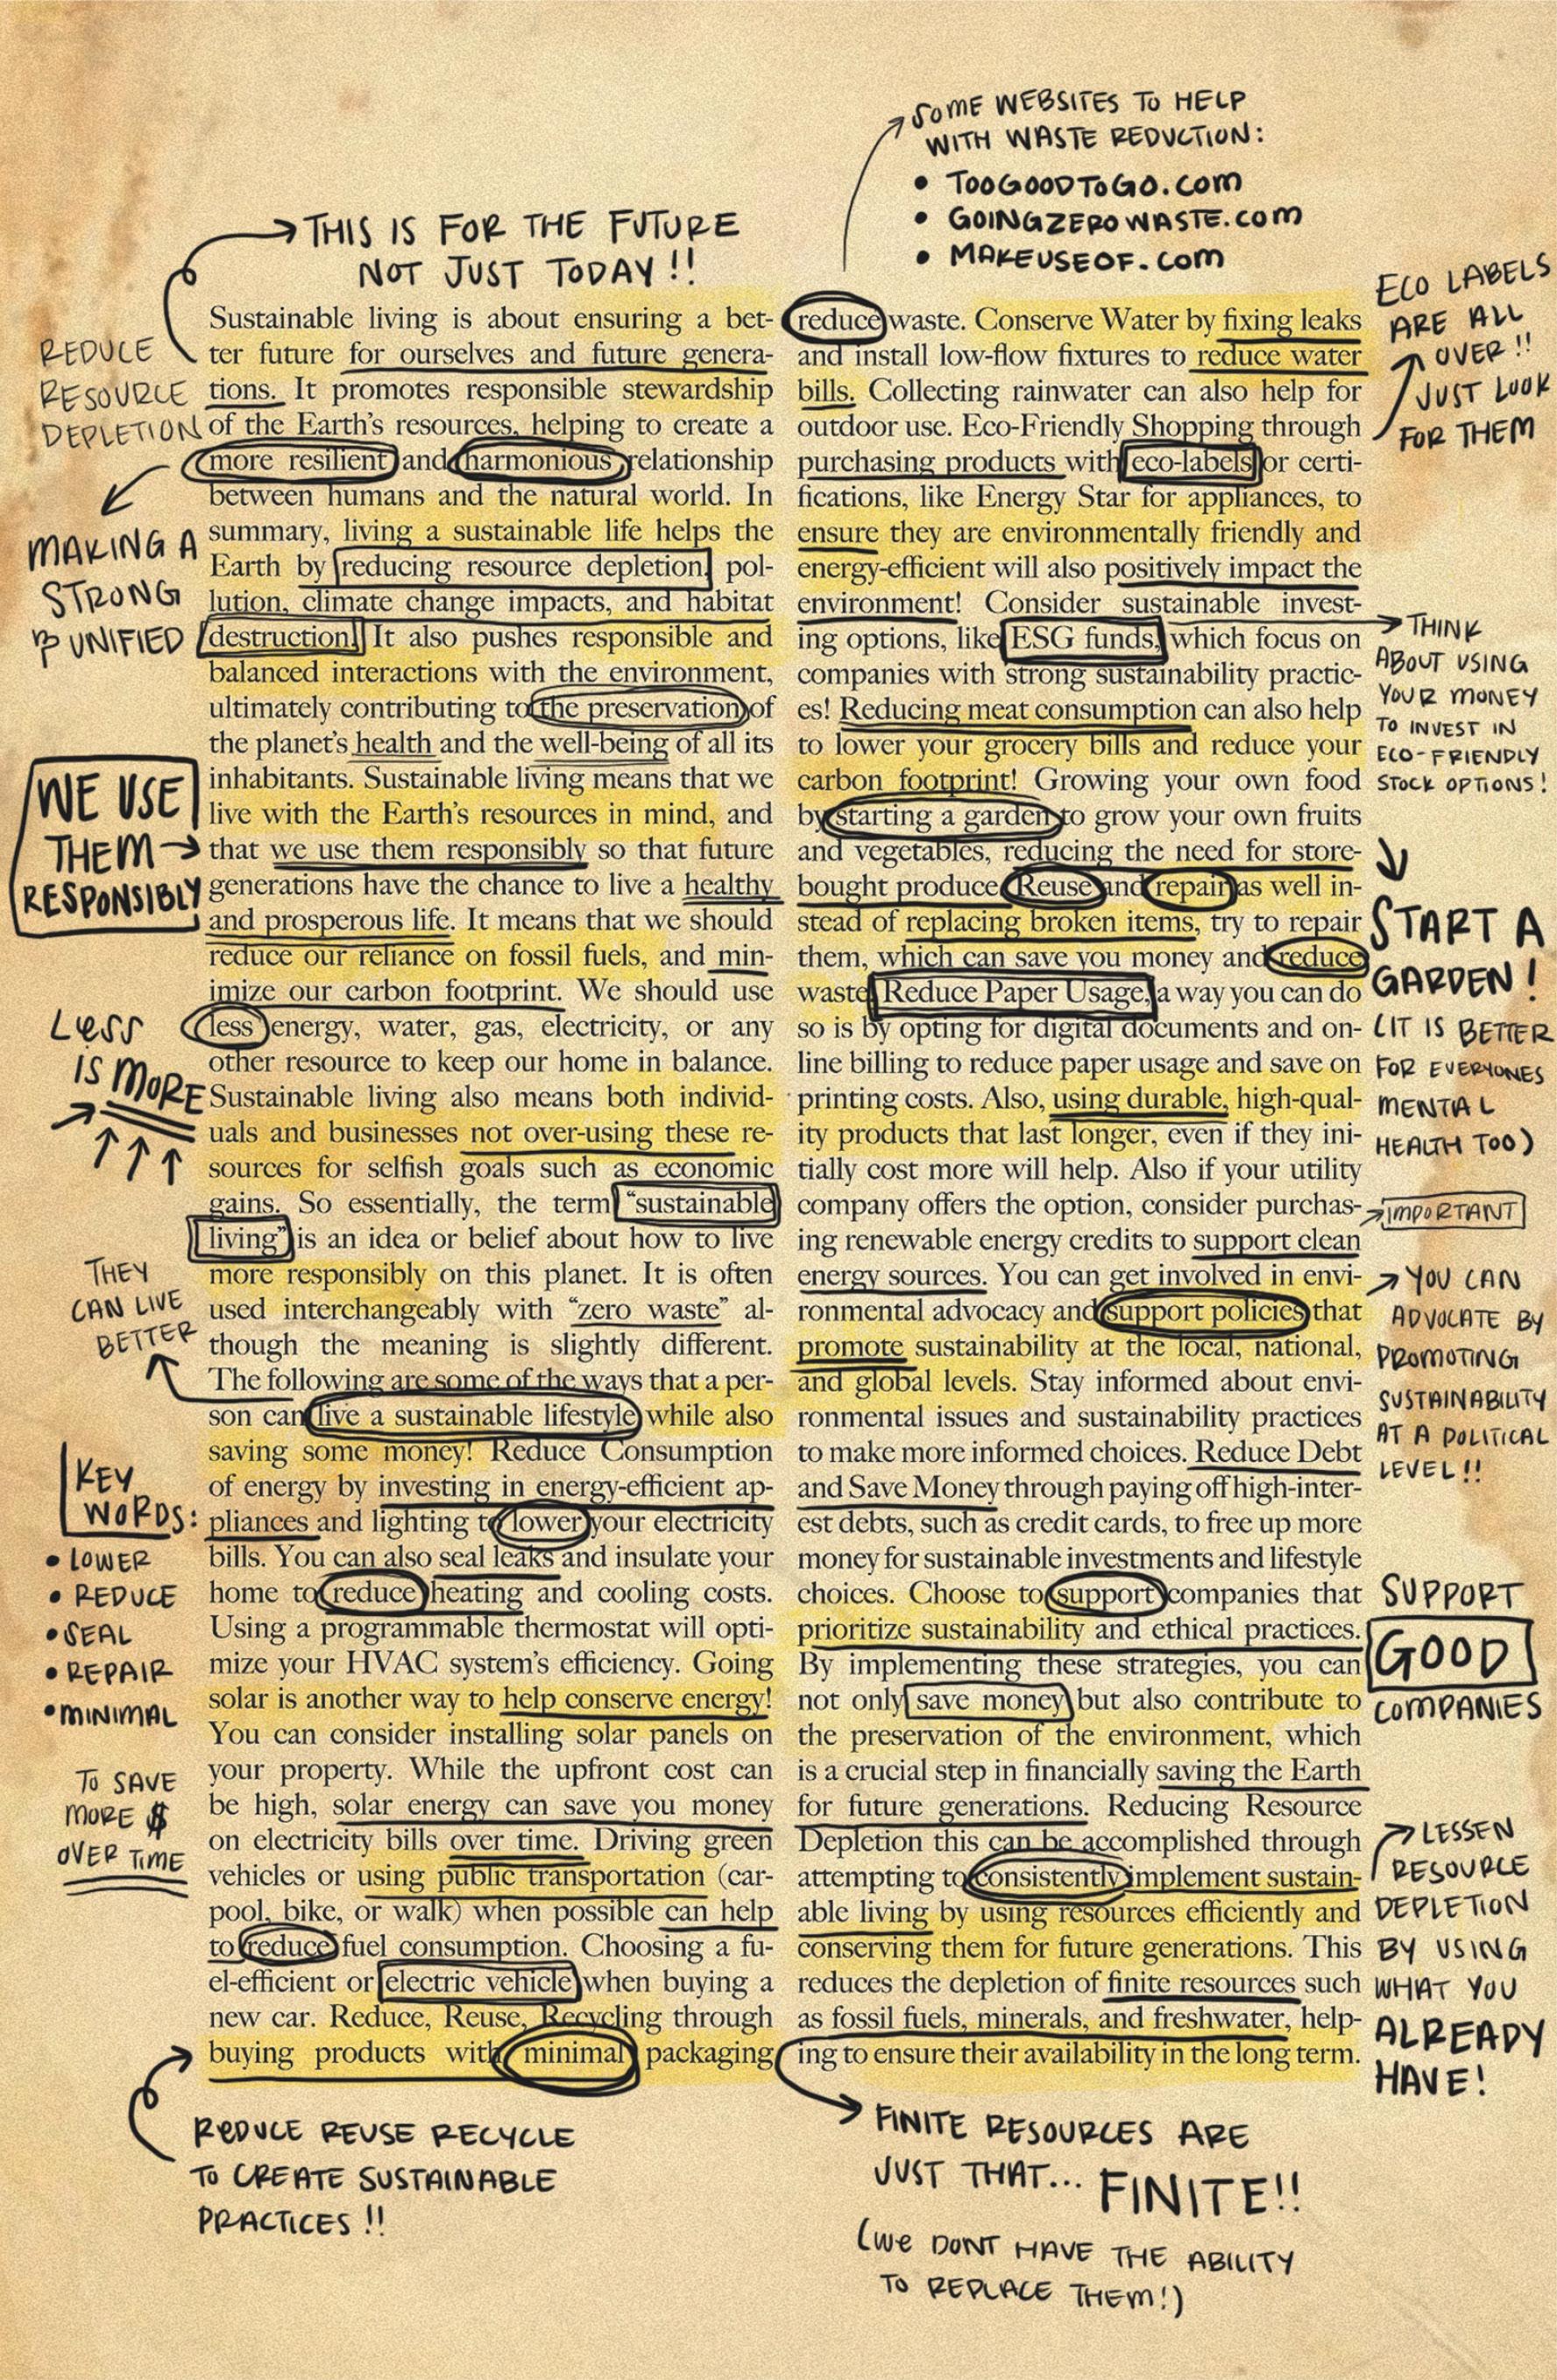 THIS IS FOR THE FUTURE
NOT JUST TODAY!!
SOME WEBSITES TO HELP
WITH WASTE REDUCTION:
• TOOGOODTOGO.COM
• GOINGZEROWASTE.COM
• MAKEUSEOF.COM
REDUCE
RESOURCE
DEPLETION
MAKING A
STRONG
& UNIFIED
WE USE
THEM
RESPONSIBLY
LESS
IS MORE
THEY
CAN LIVE
BETTER
KEY
WORDS:
• LOWER
• REDUCE
• SEAL
• REPAIR
• MINIMAL
TO SAVE
MORE $
OVER TIME
Sustainable living is about ensuring a bet-
ter future for ourselves and future genera-
tions. It promotes responsible stewardship
of the Earth's resources, helping to create a
more resilient and harmonious relationship
between humans and the natural world. In
summary, living a sustainable life helps the
Earth by reducing resource depletion, pol-
lution, climate change impacts, and habitat
destruction. It also pushes responsible and
balanced interactions with the environment,
ultimately contributing to the preservation of
the planet's health and the well-being of all its
inhabitants. Sustainable living means that we
live with the Earth's resources in mind, and
that we use them responsibly so that future
generations have the chance to live a healthy
and prosperous life. It means that we should
reduce our reliance on fossil fuels, and min-
imize our carbon footprint. We should use
less energy, water, gas, electricity, or any
other resource to keep our home in balance.
Sustainable living also means both individ-
uals and businesses not over-using these re-
sources for selfish goals such as economic
gains. So essentially, the term "sustainable
living" is an idea or belief about how to live
more responsibly on this planet. It is often
used interchangeably with "zero waste" al-
though the meaning is slightly different.
The following are some of the ways that a per-
son can live a sustainable lifestyle while also
saving some money! Reduce Consumption
of energy by investing in energy-efficient ap-
pliances and lighting to lower your electricity
bills. You can also seal leaks and insulate your
home to reduce heating and cooling costs.
Using a programmable thermostat will opti-
mize your HVAC system's efficiency. Going
solar is another way to help conserve energy!
You can consider installing solar panels on
your property. While the upfront cost can
be high, solar energy can save you money
on electricity bills over time. Driving green
vehicles or using public transportation (car-
pool, bike, or walk) when possible can help
to reduce fuel consumption. Choosing a fu-
el-efficient or electric vehicle when buying a
new car. Reduce, Reuse, Recycling through
buying products with minimal packaging
REDUCE REUSE RECYCLE
TO CREATE SUSTAINABLE
PRACTICES!!
reduce waste. Conserve Water by fixing leaks
and install low-flow fixtures to reduce water
bills. Collecting rainwater can also help for
outdoor use. Eco-Friendly Shopping through
purchasing products with eco-labels or certi-
fications, like Energy Star for appliances, to
ensure they are environmentally friendly and
energy-efficient will also positively impact the
environment! Consider sustainable invest-
ing options, like ESG funds, which focus on
companies with strong sustainability practic-
es! Reducing meat consumption can also help
to lower your grocery bills and reduce your
carbon footprint! Growing your own food
by starting a garden to grow your own fruits
and vegetables, reducing the need for store-
bought produce. Reuse and repair as well in-
stead of replacing broken items, try to repair
them, which can save you money and reduce
waste. Reduce Paper Usage, a way you can do
so is by opting for digital documents and on-
line billing to reduce paper usage and save on
printing costs. Also, using durable, high-qual-
ity products that last longer, even if they ini-
tially cost more will help. Also if your utility
company offers the option, consider purchas-
ing renewable energy credits to support clean
energy sources. You can get involved in envi-
ronmental advocacy and support policies that
promote sustainability at the local, national,
and global levels. Stay informed about envi-
ronmental issues and sustainability practices
to make more informed choices. Reduce Debt
and Save Money through paying off high-inter-
est debts, such as credit cards, to free up more
money for sustainable investments and lifestyle
choices. Choose to support companies that
prioritize sustainability and ethical practices.
By implementing these strategies, you can
not only save money but also contribute to
the preservation of the environment, which
is a crucial step in financially saving the Earth
for future generations. Reducing Resource
Depletion this can be accomplished through
attempting to consistently implement sustain-
able living by using resources efficiently and
conserving them for future generations. This
reduces the depletion of finite resources such
as fossil fuels, minerals, and freshwater, help-
ing to ensure their availability in the long term.
ECO LABELS
ARE ALL
OVER!!
JUST LOOK
FOR THEM
THINK
ABOUT USING
YOUR MONEY
TO INVEST IN
ECO-FRIENDLY
STOCK OPTIONS!
START A
GARDEN!
(IT IS BETTER
FOR EVERYONES
MENTAL
HEALTH TOO)
IMPORTANT
YOU CAN
ADVOCATE BY
PROMOTING
SUSTAINABILITY
AT A POLITICAL
LEVEL!!
SUPPORT
GOOD
COMPANIES
LESSEN
RESOURCE
DEPLETION
BY USING
WHAT YOU
ALREADY
HAVE!
FINITE RESOURCES ARE
JUST THAT... FINITE!!
(WE DONT HAVE THE ABILITY
TO REPLACE THEM!)